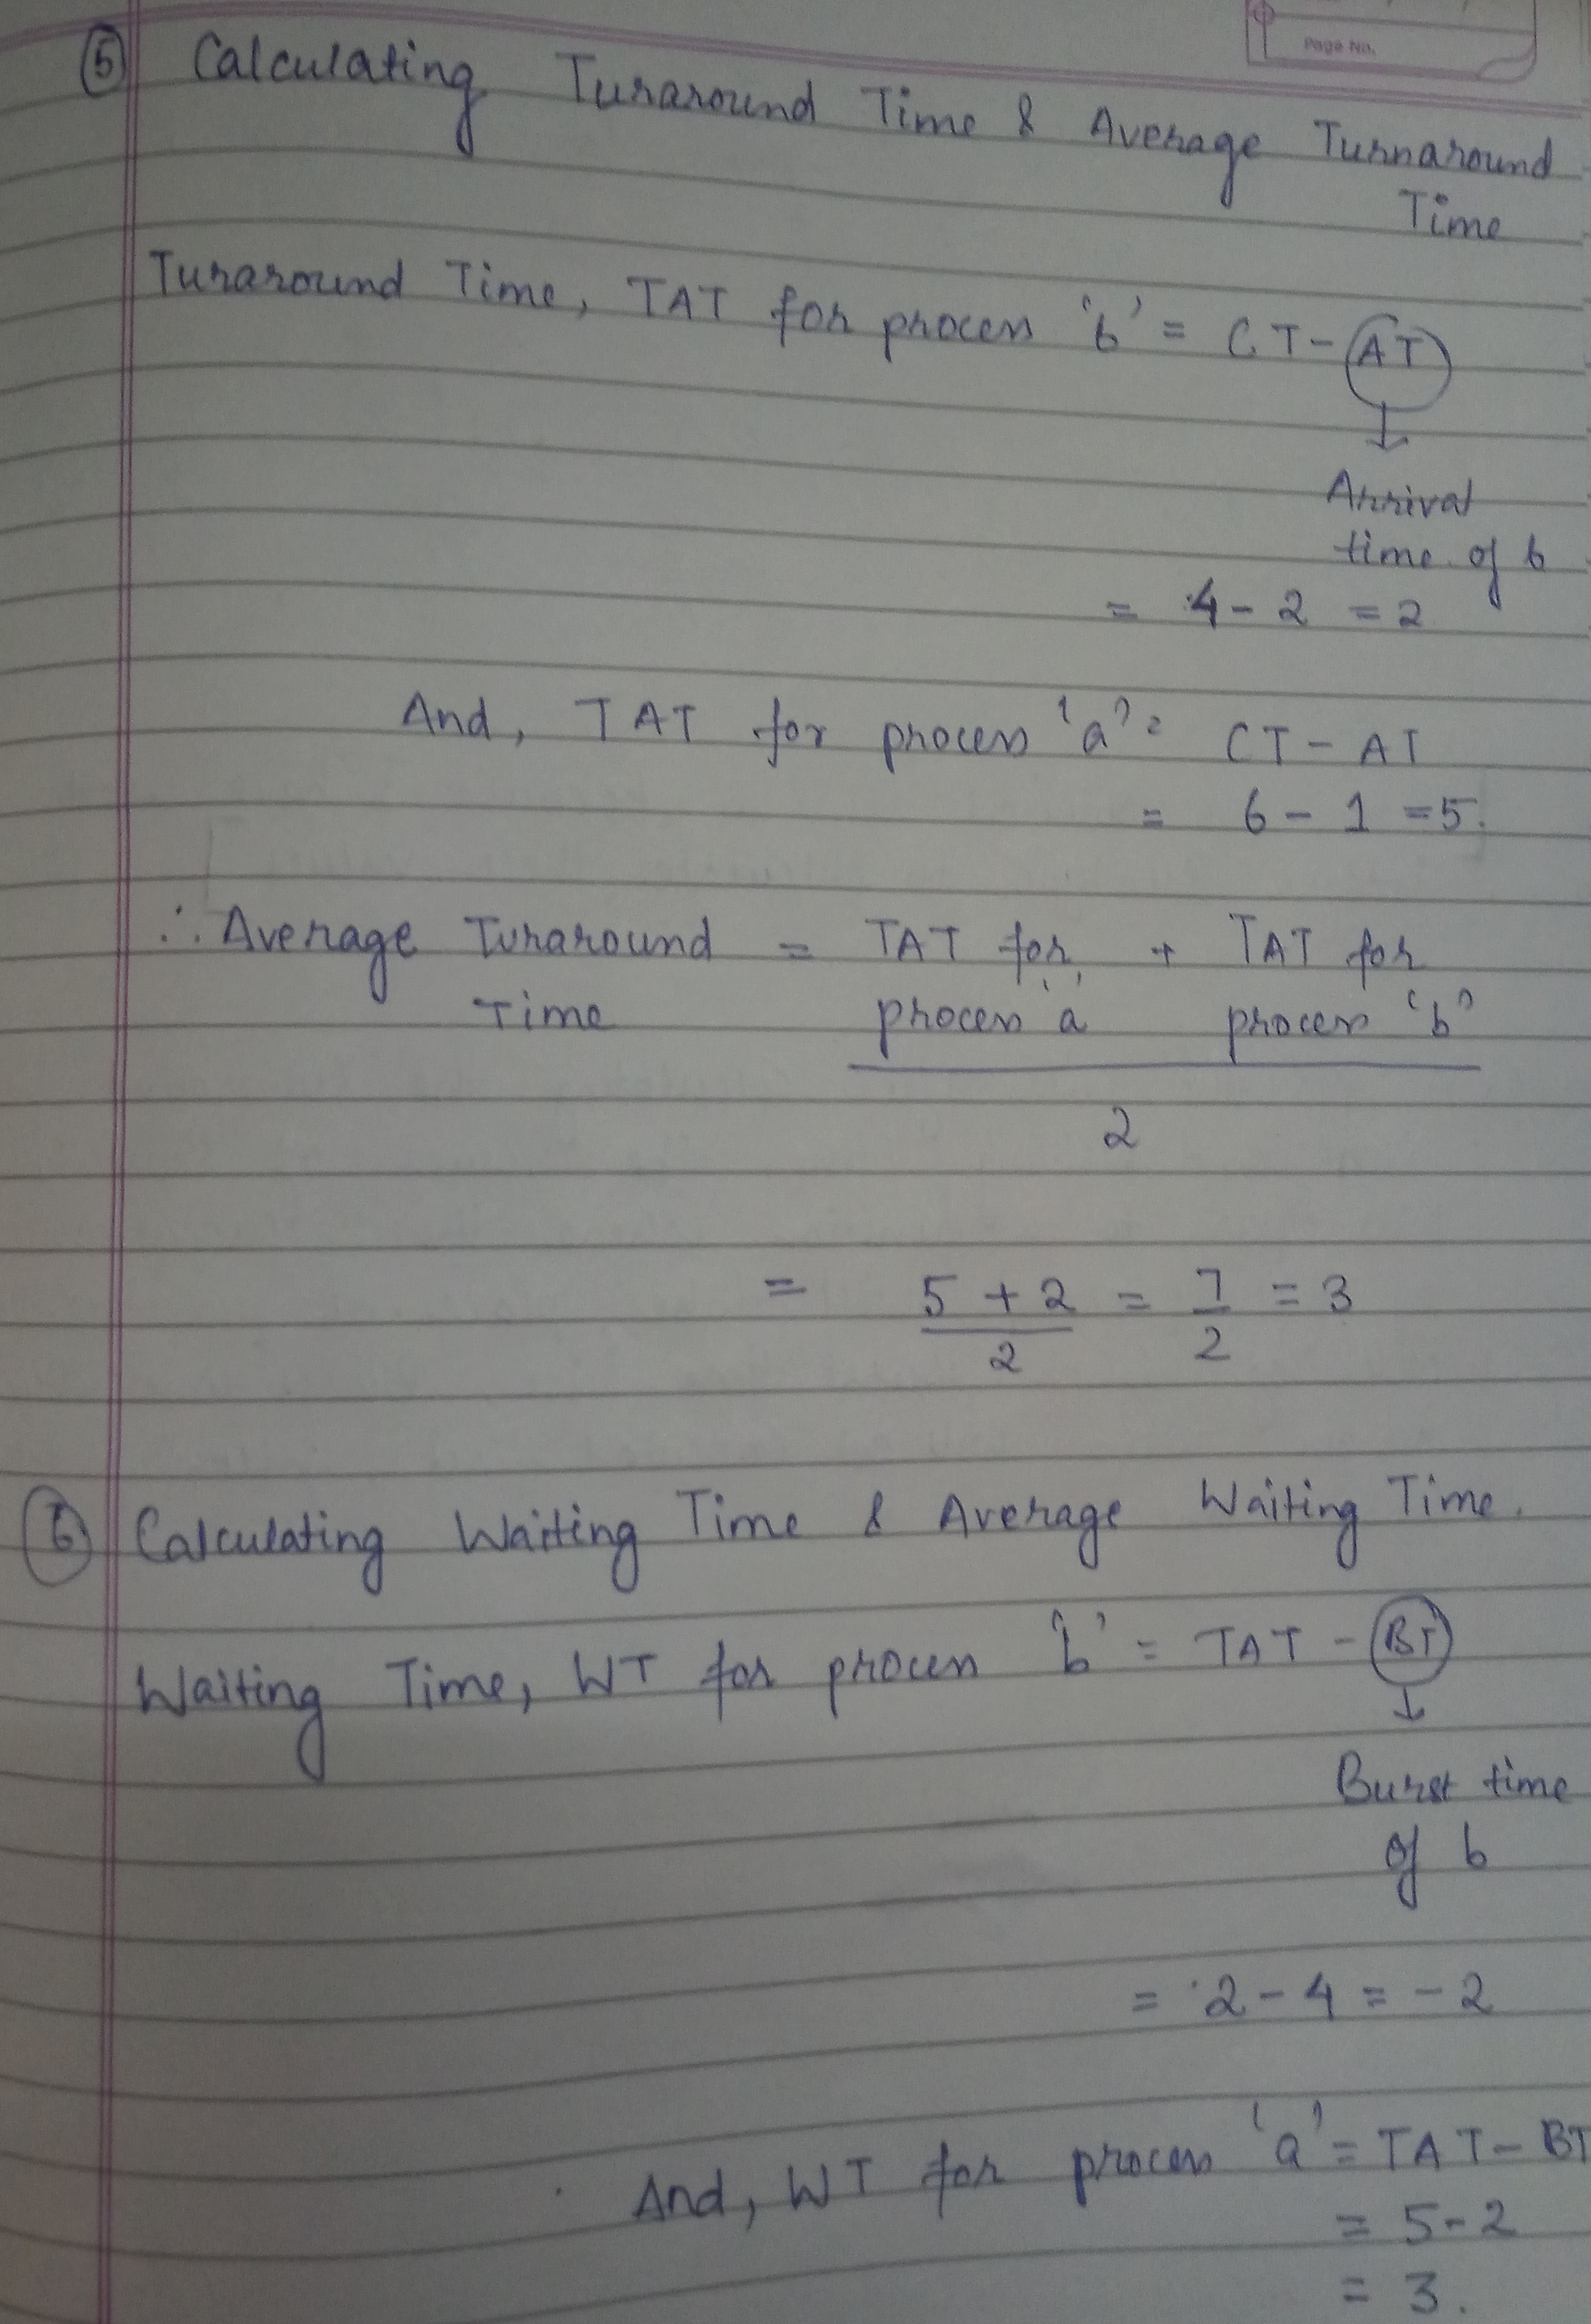 Page No.
5 Calculating Turaround Time & Average Turnaround
Time
Turaround Time, TAT for process 'b' = CT - AT
↓
Arrival
time of b
= 4 - 2 = 2
And, TAT for process 'a' = CT - AT
= 6 - 1 = 5.
∴ Average Turaround = TAT for + TAT for
Time process 'a' process 'b'
2
= 5 + 2 = 7 = 3
2 2
6 Calculating Waiting Time & Average Waiting Time.
Waiting Time, WT for process 'b' = TAT - BT
↓
Burst time
of b
= 2 - 4 = - 2
And, WT for process 'a' = TAT - BT
= 5 - 2
= 3.